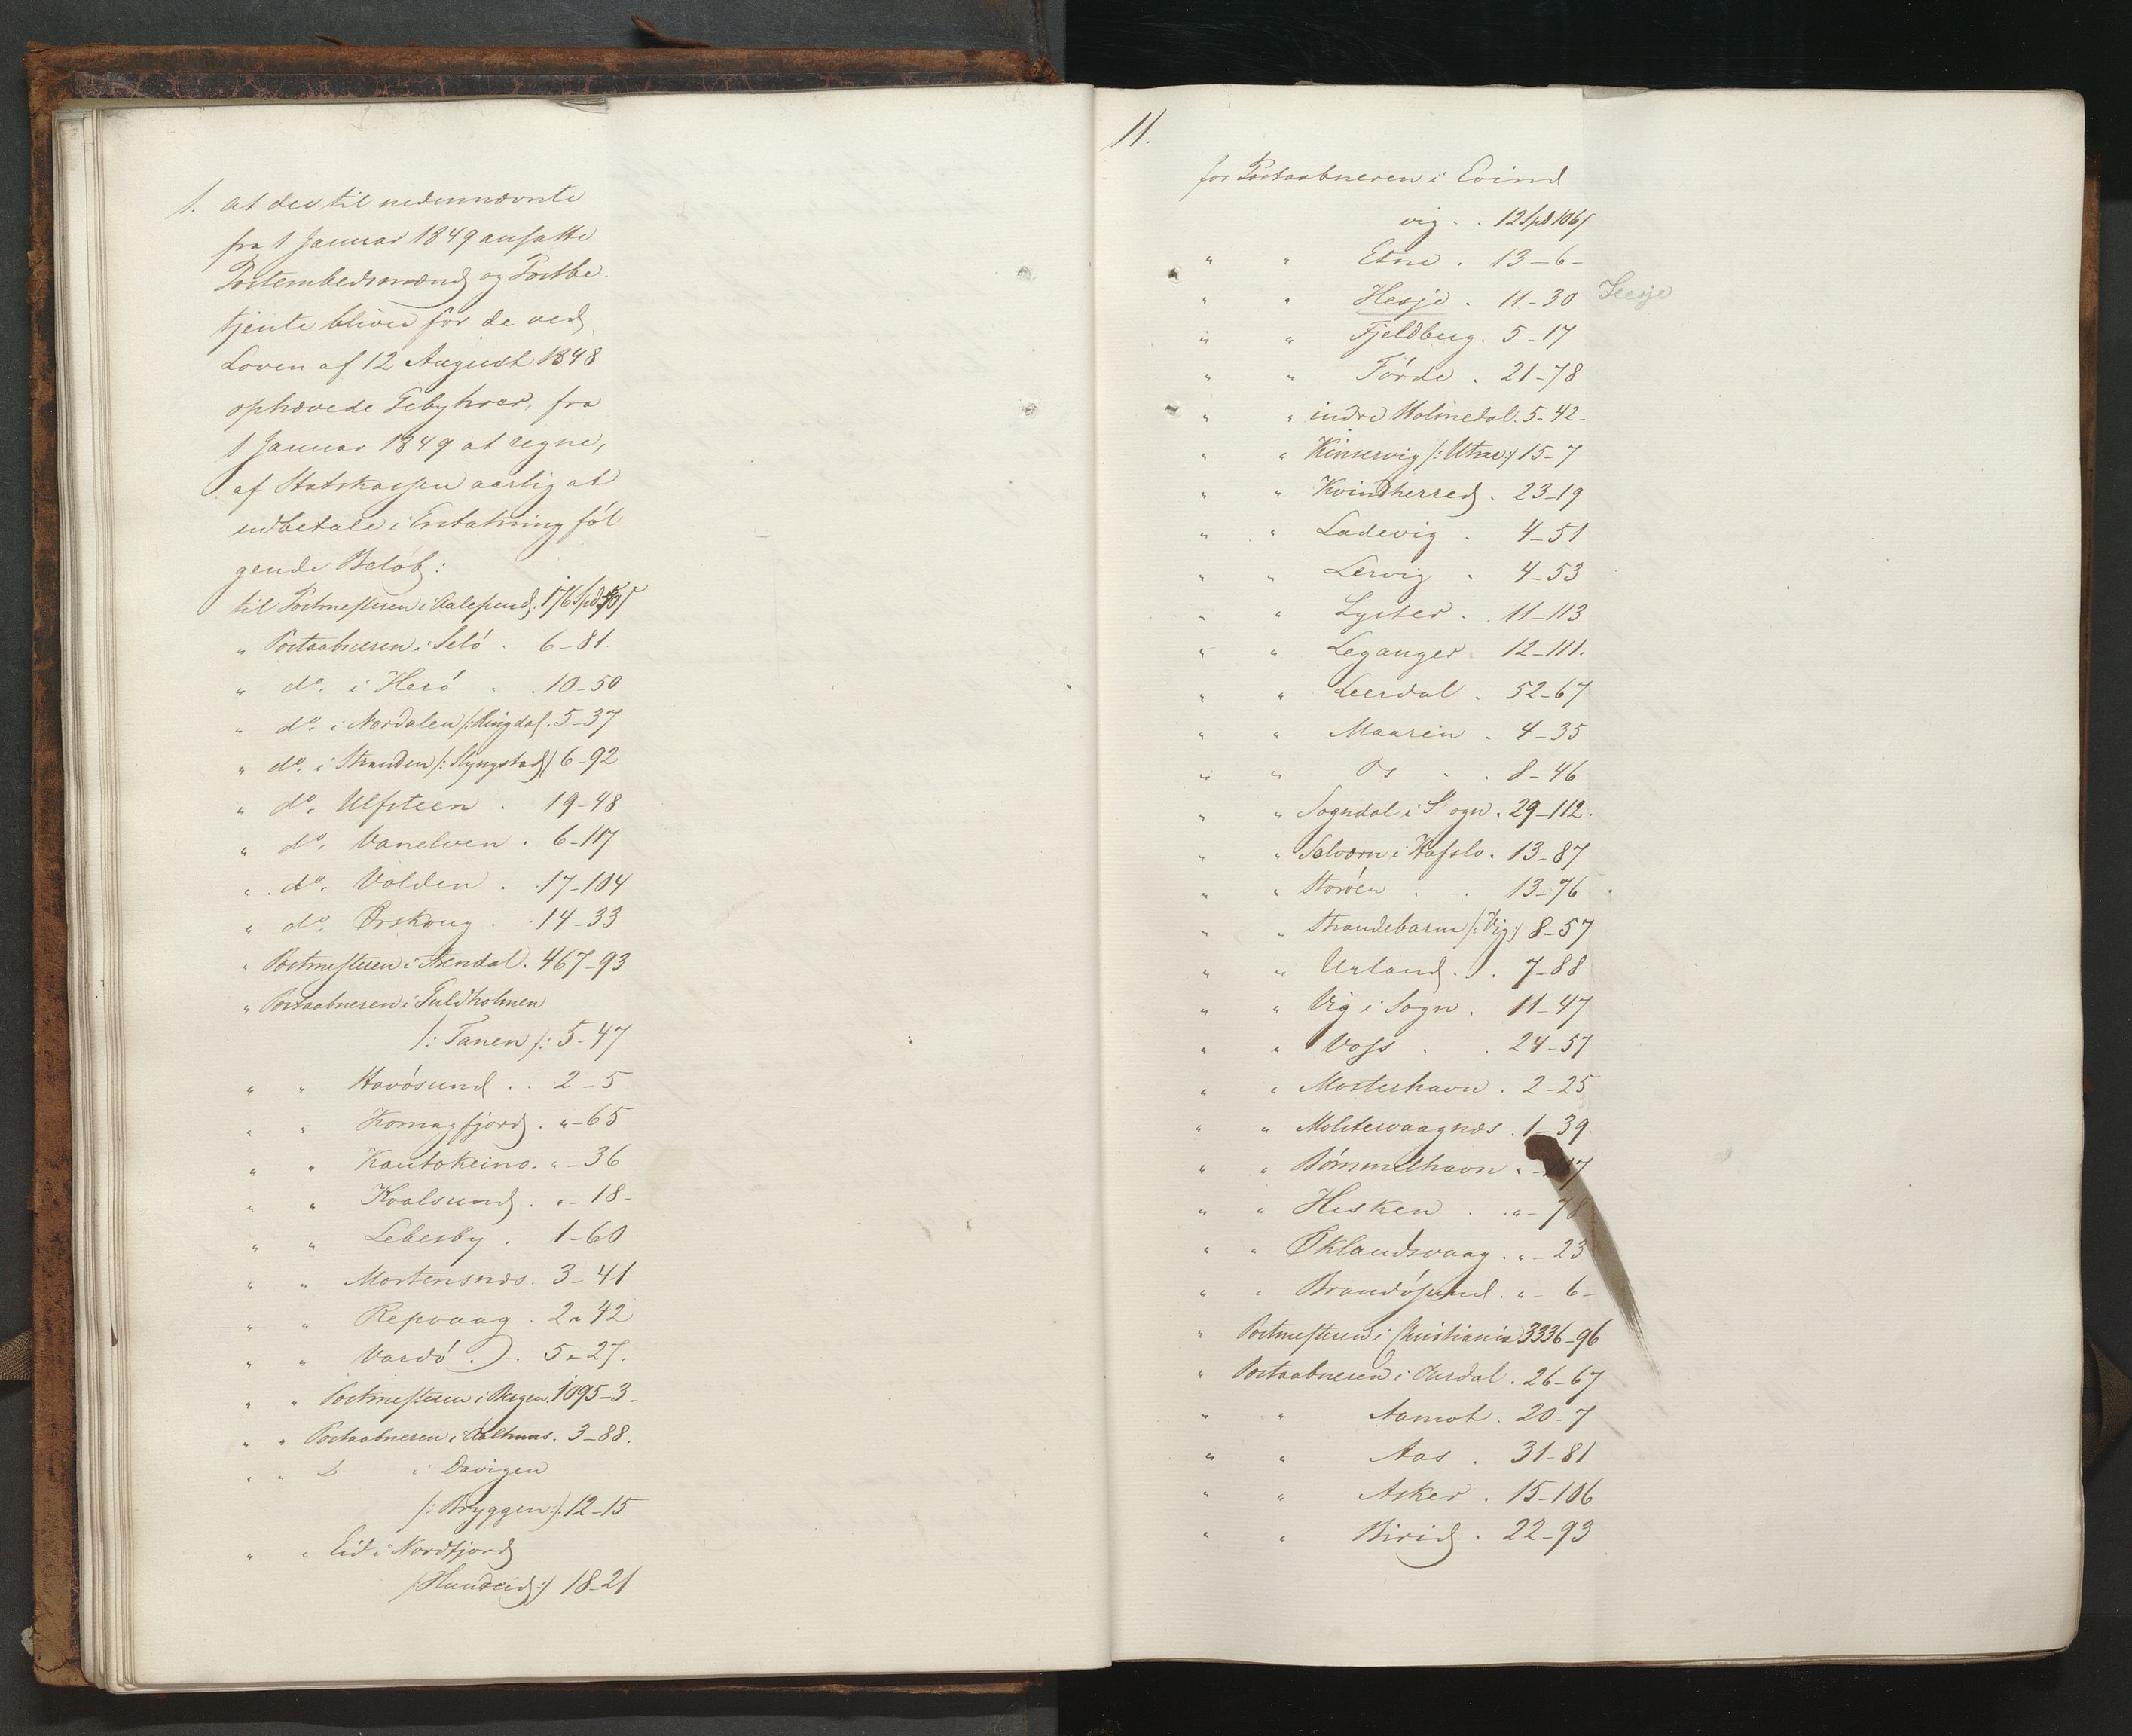 1. at der til nedennævnte
fra 1 Januar 1849 ansatte
Postembedsmænd og Postbe-
tjente bliver for de ved
Loven af 12 August 1848
ophævede Gebyhrer, fra
1 Januar 1849 at regne,
af Statskassen aarlig at
udbetale i Erstatning føl
gende Beløb:
til Postmesteren i Aalesund. 176 Spd
" Postaabneren i Selø . 6-81.
" do. i Herø . . 10-50
" do. i Nordalen /: Ringdal. 5-37
" do. i Stranden /: Slyngstad/ 6-92
" do. Ulfsteen . 19-48
" do. Vanelven . 6-117
" do. Volden . . 17-104
" do. Ørskoug . . 14-33
" Postmesteren i Arendal. 467-93
" Postaabneren i Guldholmen
/: Tanen /: 5-47
" " Havøsund . . 2-5
" " Komagfjord . "-65
" " Kautokeino. "-36
" " Kvalsund . "-18-
" " Lebesby . 1-60
" " Mortensnæs. 3-41
" " Repvaag . 2-42
" " Vardø . . 5-27.
" " Postmesteren i Bergen. 1095-3-
" " Postaabneren i Aalhuus. 3-88.
" " D i Davigen
/: Bryggen:/. 12-15
" " Eid i Nordfjord
/Hundeid:/ 18-21
11.
for Postaabneren i Evind
vig . . 12 Spd 106 s
" " Etne . 13-6-
" " Hesje . 11-30 Heesje
" " Fjeldberg. 5-17
" " Førde . 21-78
" " indre Holmedal. 5-42-
" " Kinservig /: Utne:/ 15-7
" " Kvindherred . 23-19
" " Ladevig . 4-51
" " Lervig . 4-53
" " Lyster . . 11-113
" " Leganger . 12-111.
" " Leerdal . 52-67
" " Maaren . 4-35
" " Os . . 8-46
" " Sogndal i Sogn . 29-112.
" " Solvorn i Hafslo . 13-87
" " Storøen . . 13-76
" " Strandebarm /: Vig:/ 8-57
" " Urland . . 7-88
" " Vig i Sogn . 11-47
" " Voss . . 24-57
" " Mosterhavn . 2-25
" " Molstervaagnæs . 1-39.
" " Bømmelhavn "
" " Hisken . . "-78
" " Øklandsvaag . "-23
" " Brandøsund . "-6-
" Postmesteren i Christiania 3336-96
" Postaabneren i Aurdal . 26-67
" " Aamot . 20-7
" " Aas . 31-81
" " Asker . 15-106
" " Birid . 22-93